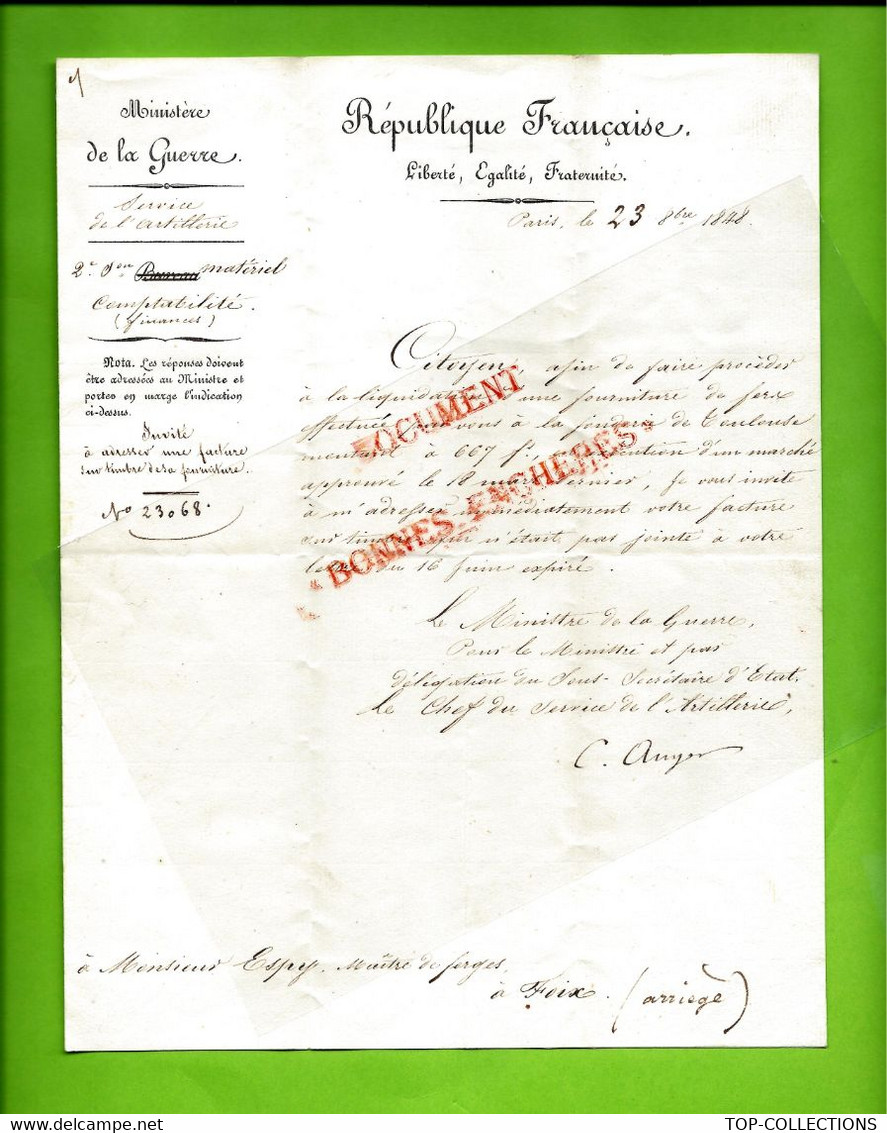 Ministère
de la Guerre.
Service
de l'artillerie
2e Son Bureau matériel
Comptabilité.
(finances)
Nota. Les réponses doivent
être adressées au Ministre et
porter en marge l'indication
ci-dessus.
Invité
à adresser une facture
sur timbre de sa fourniture.
No 23068.
République Française.
Liberté, Egalité, Fraternité.
Paris, le 23 8bre 1848.
Citoyen, afin de faire procéder
à la liquidation d'une fourniture de fers
effectuée par vous à la fonderie de Toulouse
montant à 667 f. exécution d'un marché
approuvé le 18 mars dernier, Je vous invite
à m'adresser immédiatement votre facture
sur timbre qui n'était pas jointe à votre
lettre du 16 Juin expiré.
Le Ministre de la Guerre,
Pour le Ministre et par
délégation du Sous-Secrétaire d'Etat.
Le Chef du Service de l'Artillerie,
C. Auger
à Monsieur Espy, Maître de forges,
à Foix. (arriège)
DOCUMENT
"BONNES ENCHERES"
TOP-COLLECTIONS